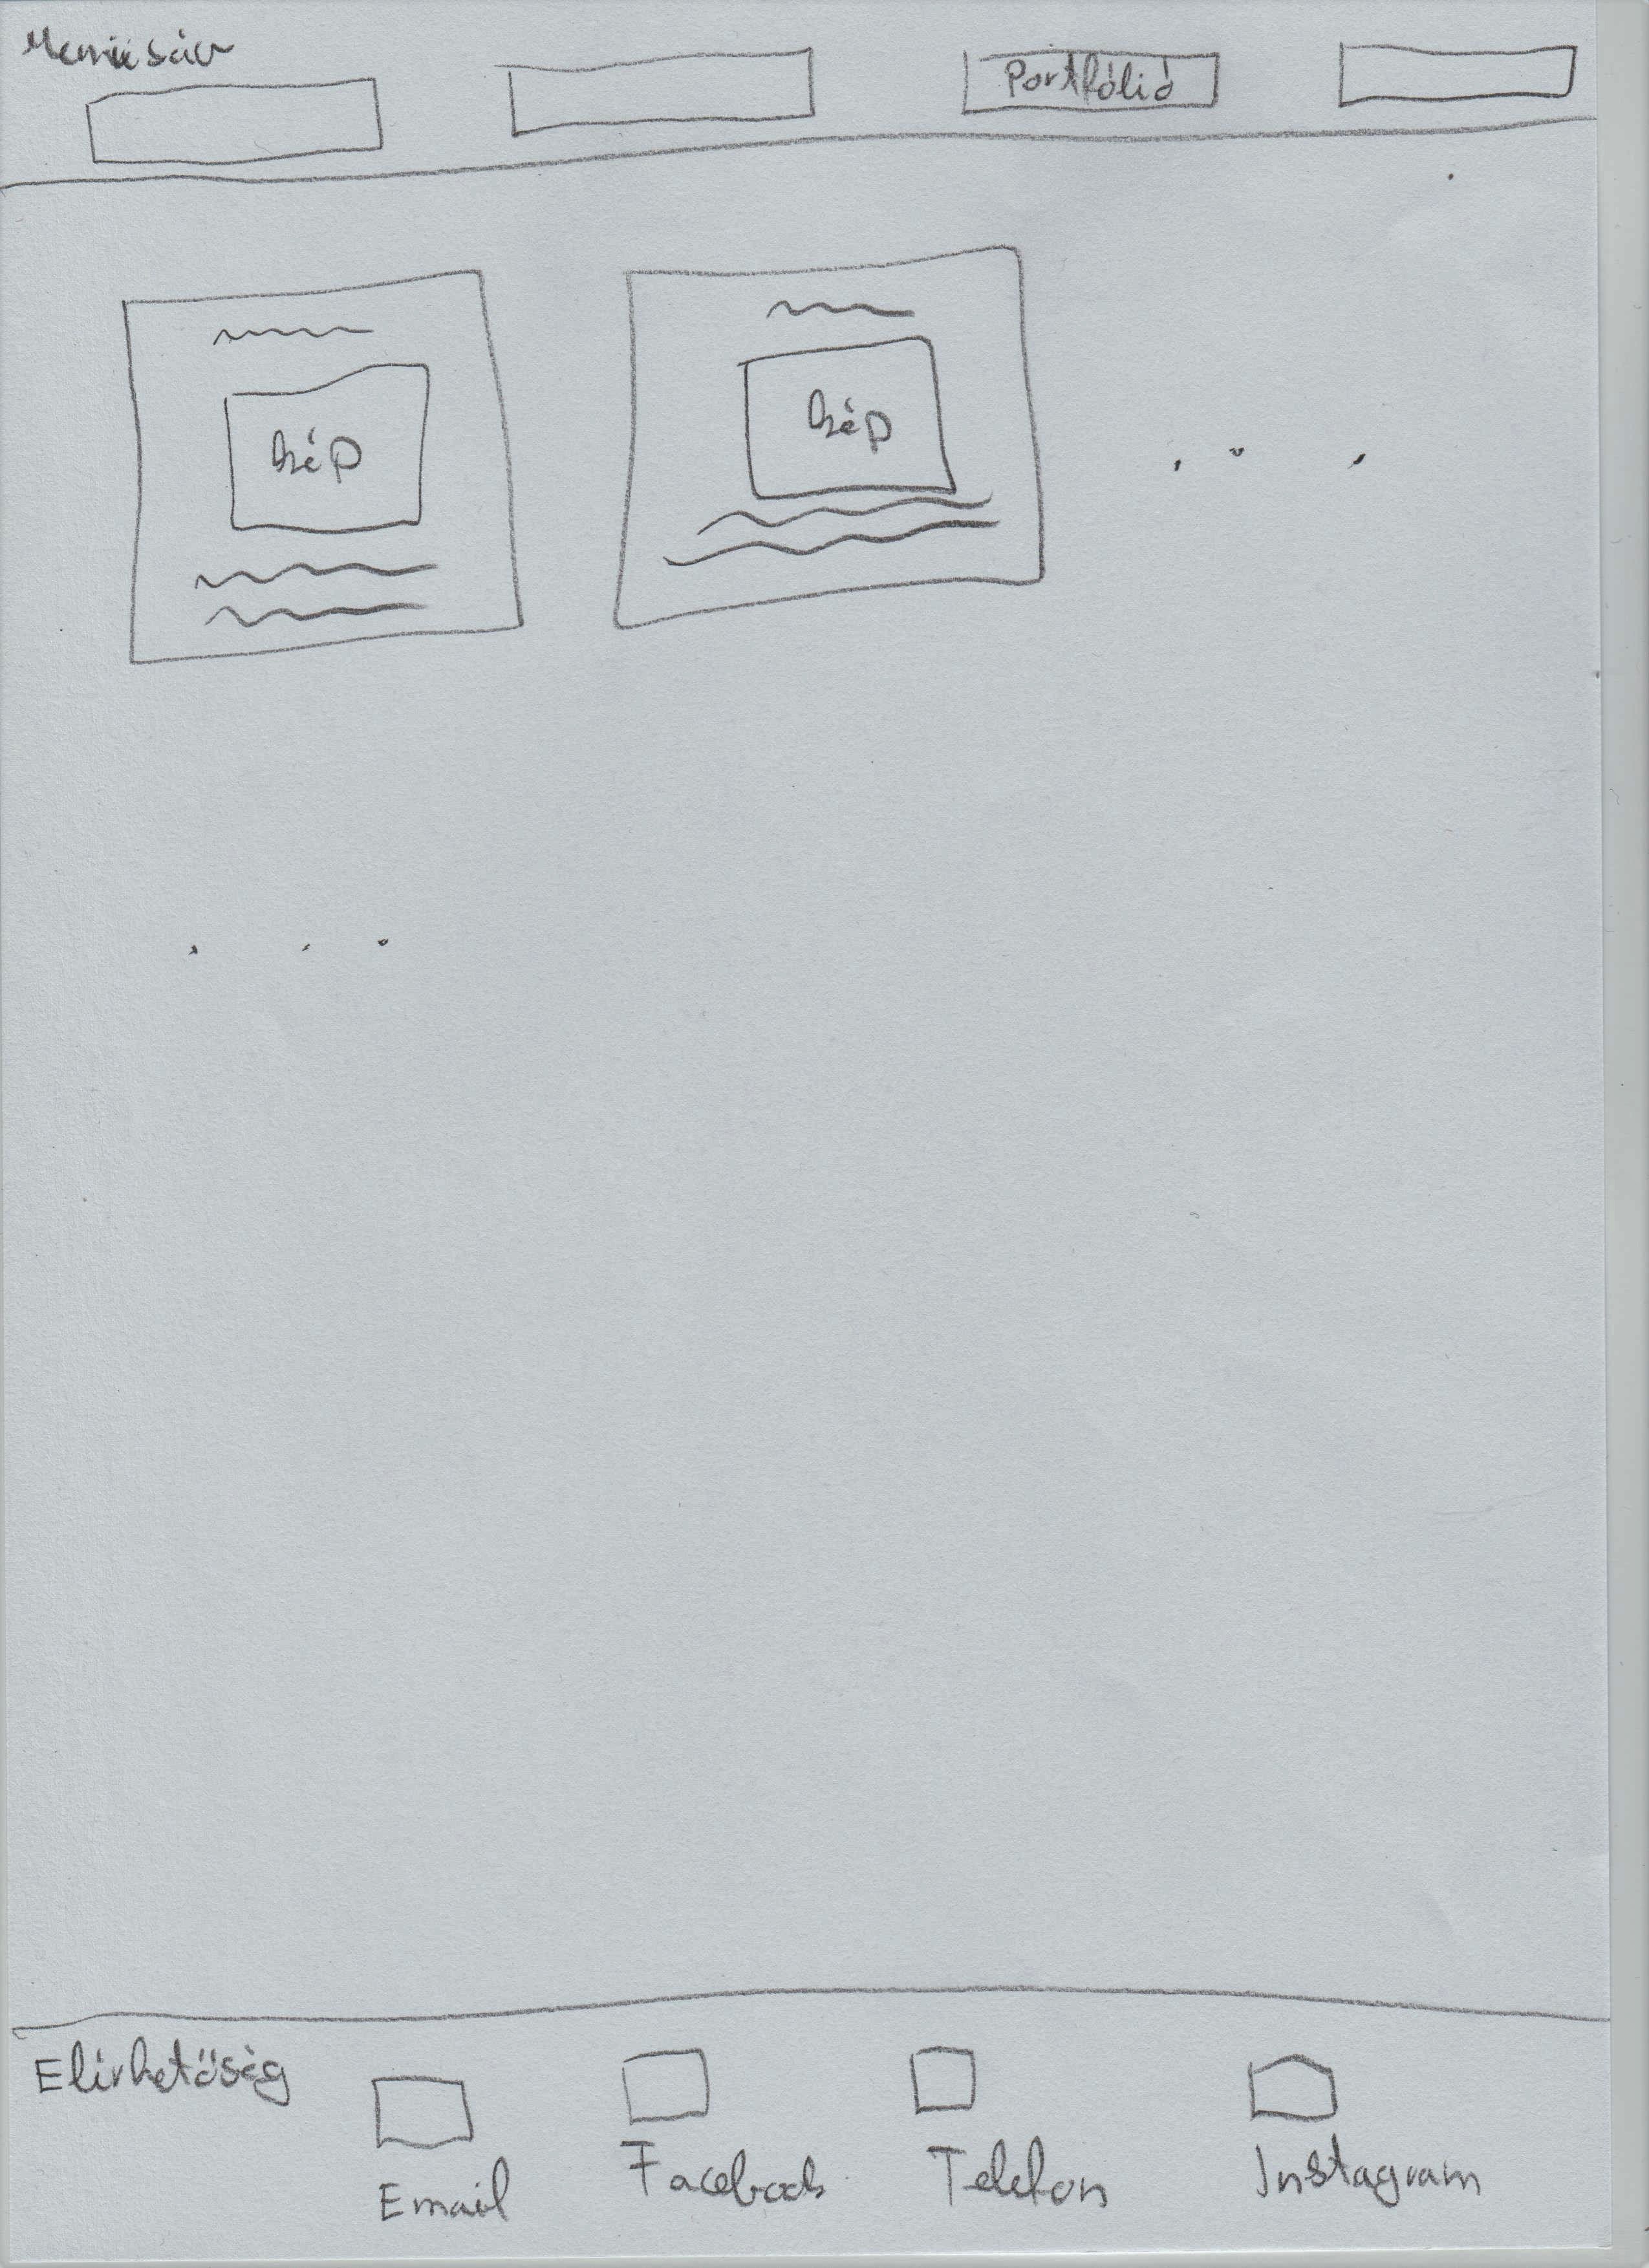 Menüsáv
Portfólió
kép
kép
Elérhetőség
Email
Facebook
Telefon
Instagram